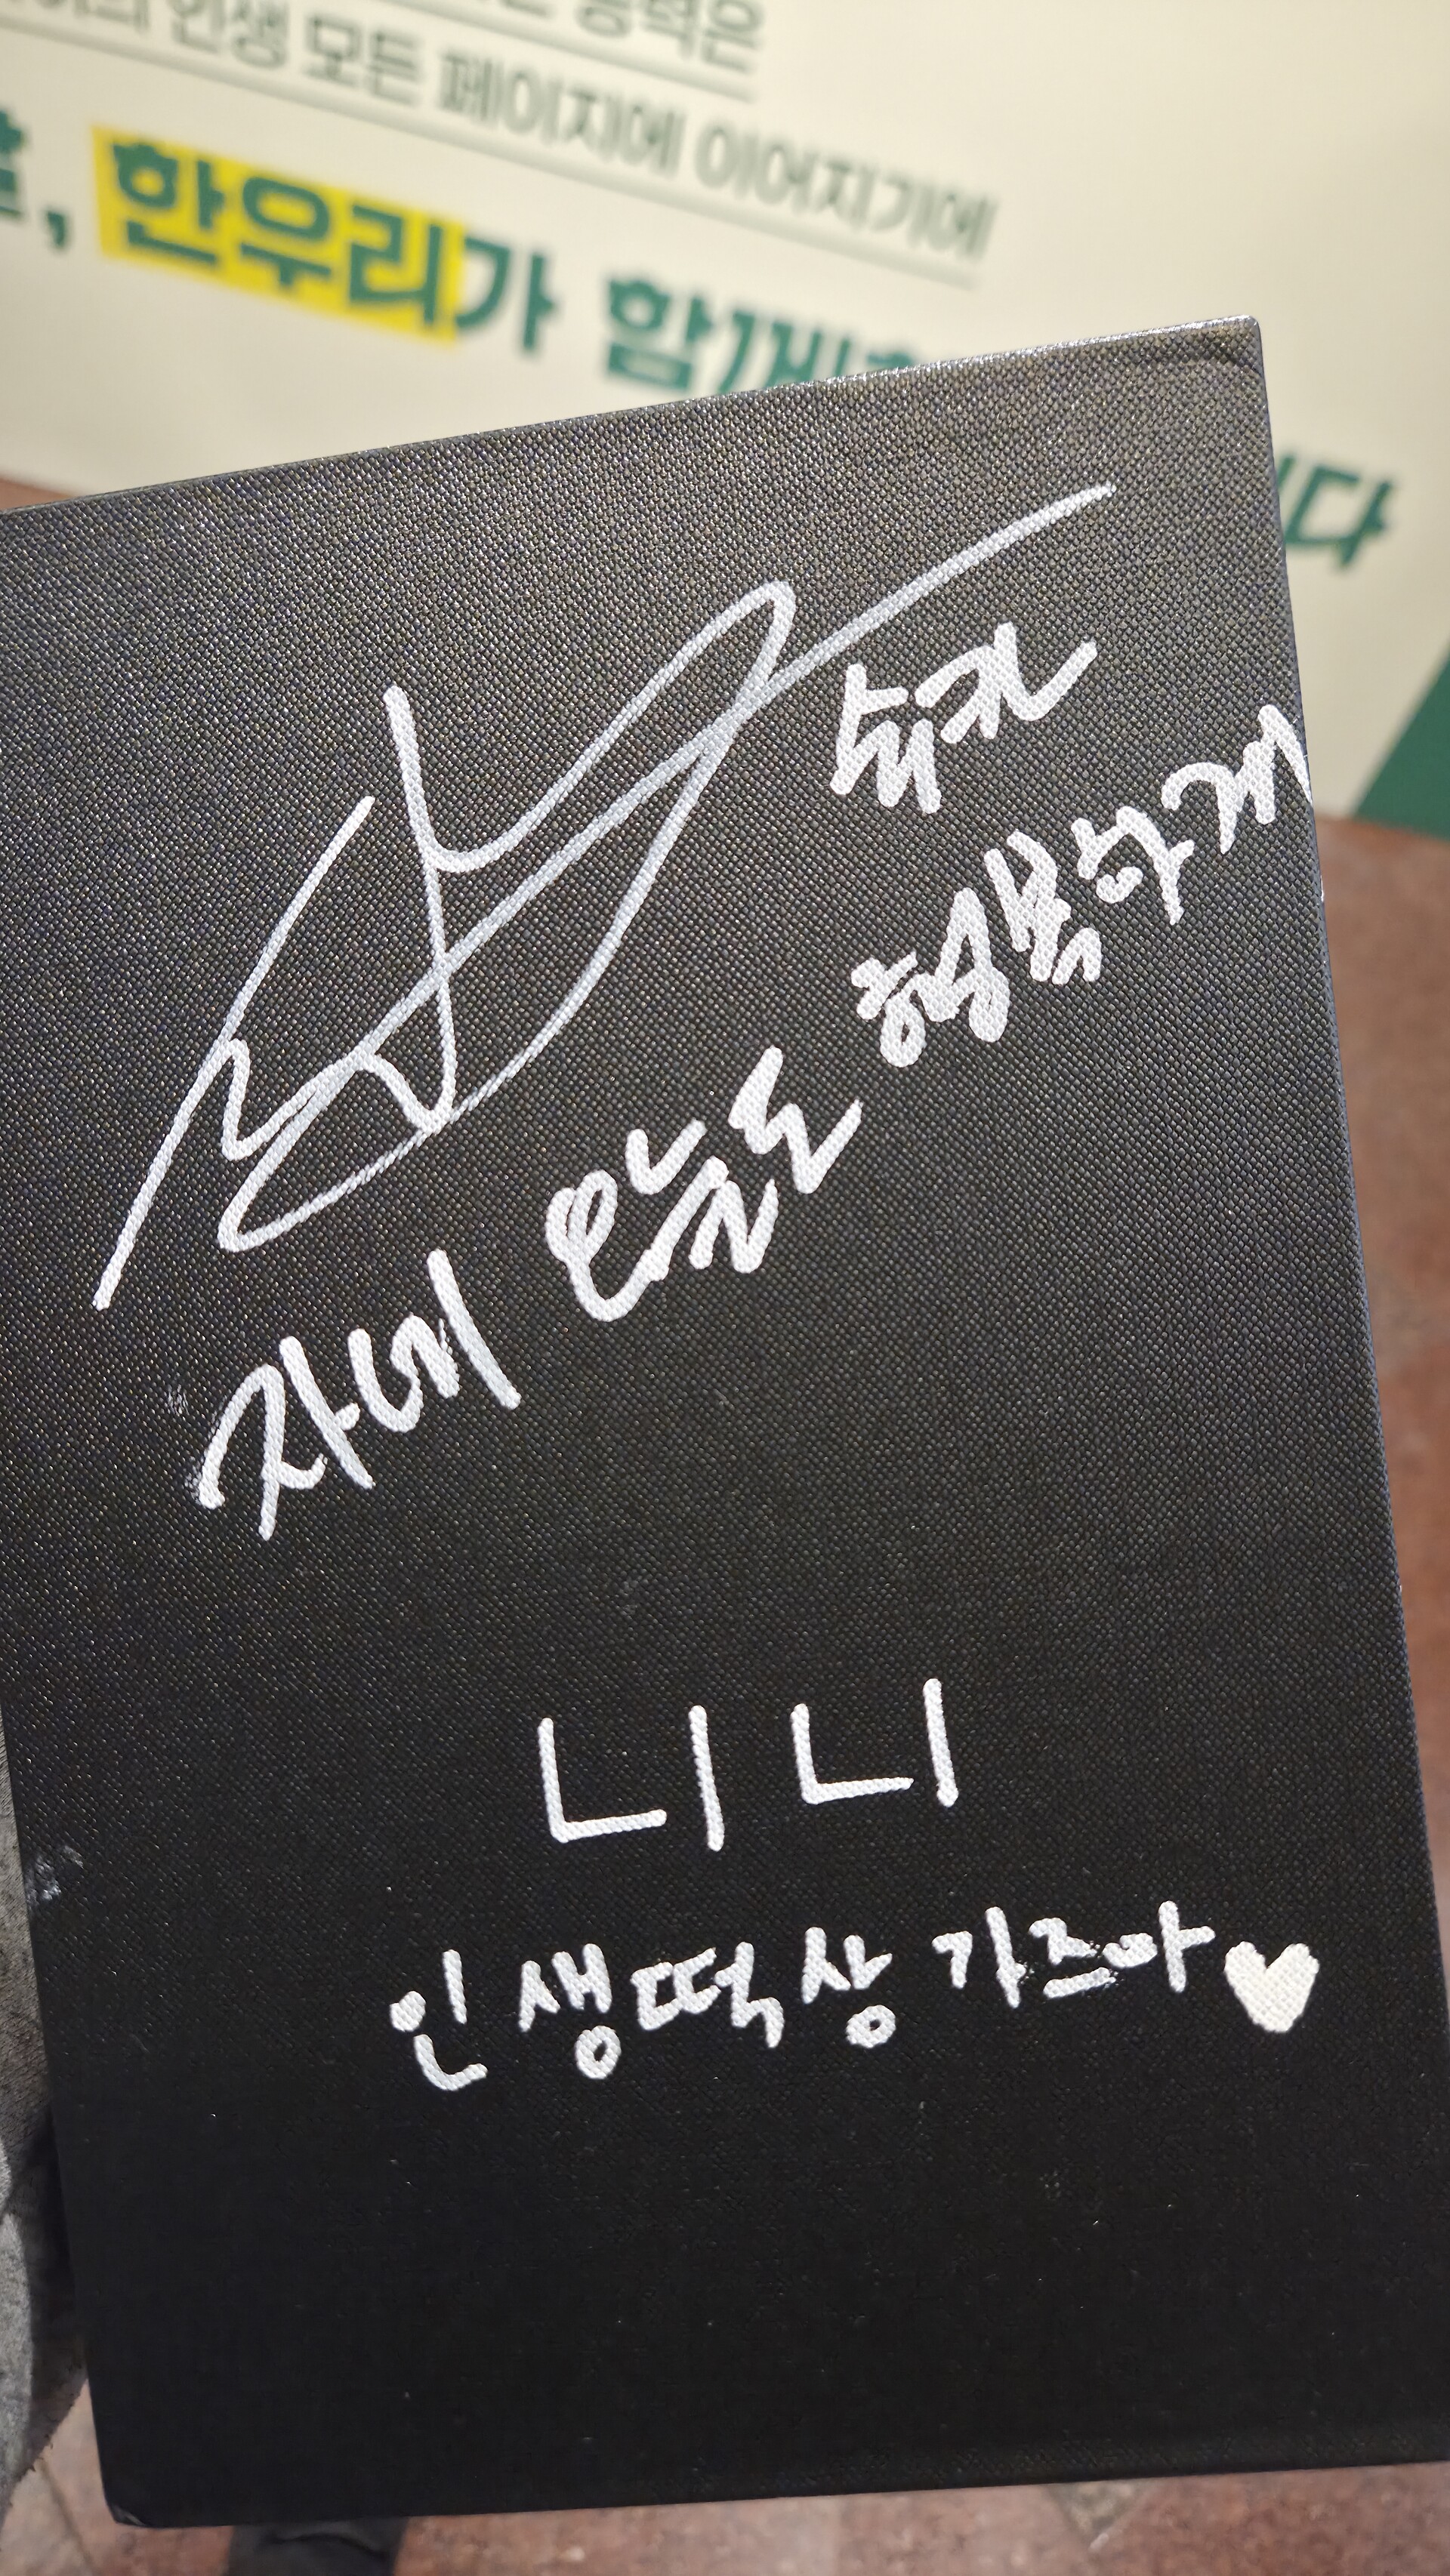 인생 모든 페이지에 이어지기에
한우리가 함께
다
슈카
자네 오늘도 행복하게
니니
인생떡상 가즈아♥